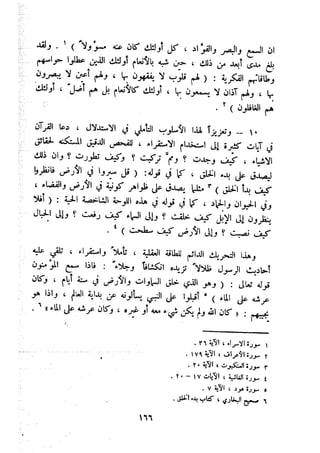 ان السمع والبصر والفؤاد ، كل أولئك كان عنه مسؤولاً ) ١ . ولقد
بلغ مدى أبعد من ذلك ، حين شبه بالأنعام أولئك الذين عطلوا حواسهم
وطاقاتهم الفكرية : ( لهم قلوب لا يفقهون بها ، ولهم أعين لا يبصرون
بها ، ولهم آذان لا يسمعون بها ، أولئك كالأنعام بل هم أضل ، أولئك
هم الغافلون ) ٢ .
١٠ – وتعزيزاً لهذا الأسلوب التأملي في الاستدلال ، دعا القرآن
في آيات كثيرة إلى استخدام الاستقراء ، للفحص الدقيق المستكنه لحقائق
الأشياء ، كيف وجدت ؟ ومم تركبت ؟ وكيف تطورت ؟ وان ذلك
ليصدق على بدء الخلق ، كما في قوله : ( قل سيروا في الأرض فانظروا
كيف بدأ الخلق ) ٣ مثلما يصدق على ظواهر كونية في الأرض والفضاء ،
وفي الحيوان والجماد ، كما في قوله في هذه اللوحة الشاخصة الحية : ( أفلا
ينظرون إلى الإبل كيف خلقت ؟ وإلى السماء كيف رفعت ؟ وإلى الجبال
كيف نصبت ؟ وإلى الأرض كيف سطحت ) ٤ .
وهذا التحريك الدائم للطاقة العقلية ، تأملاً واستقراء ، تلقي عليه
أحاديث الرسول ظلالاً تزيده انكشافاً وجلاء : فاذا سمع المؤمنون
قوله تعالى : ( وهو الذي خلق السماوات والأرض في ستة أيام ، وكان
عرشه على الماء ) ٥ أقبلوا على النبي يسألونه عن بداية العالم ، واذا هو
يجيبهم : « كان الله ولم يكن شيء معه أو غيره ، وكان عرشه على الماء » ٦ .
١ سورة الاسراء ، الآية ٣٦ .
٢ سورة الأعراف ، الآية ١٧٩ .
٣ سورة العنكبوت ، الآية ٢٠ .
٤ سورة الغاشية ، الآيات ١٧ – ٢٠ .
٥ سورة هود ، الآية ٧ .
٦ صحيح البخاري ، كتاب بدء الخلق .
١٦٦